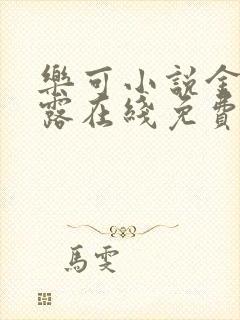 樂可小說金
露在綫免費
馬雯